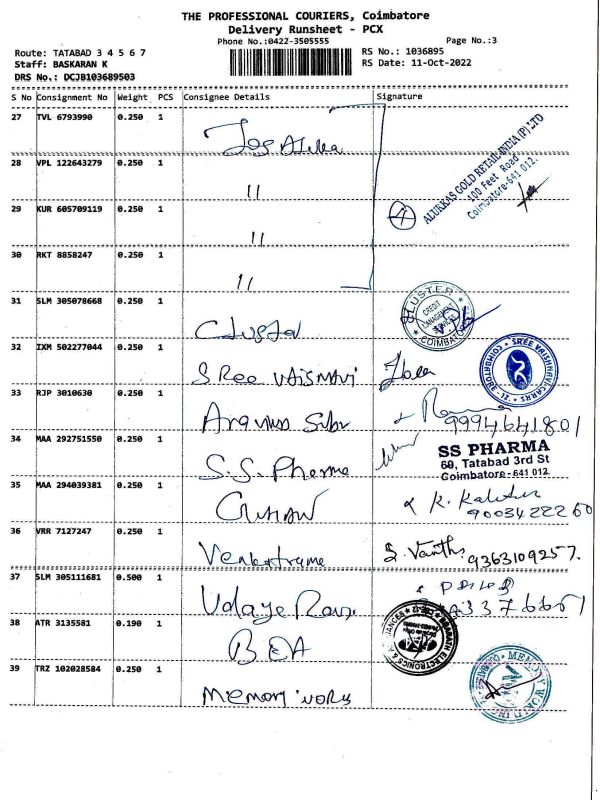 THE PROFESSIONAL COURIERS, Coimbatore
Delivery Runsheet - PCX
Phone No.:0422-3505555
Page No.:3
Route: TATABAD 3 4 5 6 7
RS No.: 1036895
Staff: BASKARAN K
RS Date: 11-Oct-2022
DRS No.: DCJB103689503
S No Consignment No Weight PCS Consignee Details Signature
27 TVL 6793990 0.250 1
ALUKKAS GOLD RETAIL INDIA (P) LTD
100 Feet Road
Coimbatore-641 012.
28 VPL 122643279 0.250 1 11
4
29 KUR 605709119 0.250 1 11
30 RKT 8858247 0.250 1 11
31 SLM 305078668 0.250 1
CLUSTER
CREDIT
MANAGEMENT
COIMBATORE
32 IXM 502277044 0.250 1 SRee VAISNAVI
SREE VAISHNAVI CARRS
COIMBATORE - 12.
33 RJP 3010630 0.250 1
9994641801
34 MAA 292751550 0.250 1 S.S. Pharma
SS PHARMA
60, Tatabad 3rd St
Coimbatore-641 012
35 MAA 294039381 0.250 1
K.
9003422260
36 VRR 7127247 0.250 1
9363109257.
37 SLM 305111681 0.500 1
38 ATR 3135581 0.190 1
ELECTRONICS &
39 TRZ 102028584 0.250 1 Memory
MEMORY WORLD INC